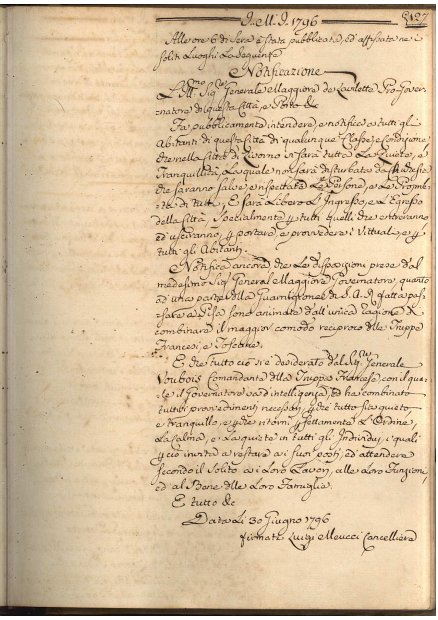 A. M. D. 1796
127
Alle ore 6 di Sera è stata pubblicata, ed affissata ne i
soliti Luoghi La seguente
Notificazione
L'Ill.mo Sig.r Generale Maggiore de Lavilette Pro Gover-
natore di questa Città, e Porto &c
Fa pubblicamente intendere, e notifica a tutti gl'
Abitanti di questa Città di qualunque Classe, e Condizione
che nella Città di Livorno si farà tutta La Quiete, e
Tranquillità, La quale non sarà disturbata da chichesia
che saranno salve, e rispettate Le Persone, e Le Propri-
età di tutti, E sarà Libero L'Ingresso, e L'Egresso
della Città specialmente p tutti quelli che entreranno
ed usciranno, p portare, e provvedere i Vittuali, e p
tutti gli Abitanti.
Notifica ancora che Le disposizioni prese dal
medesimo Sig.r General Maggiore Governatore quanto
ad una parte della Guarnigione di S. A. R. fatta pas-
sare a Pisa sono animate dall'unica ragione di
combinare il maggior comodo reciproco delle Truppe
Francesi, e Toscane.
E che tutto ciò si è desiderato dal Sig.r Generale
Voubois Comandante della Truppa Francese, con il qua-
le il Governatore va d'intelligenza, ed ha combinato
tutti i provvedimenti necessarj, p che tutto sia quieto,
e tranquillo, e p che ritorni perfettamente L'Ordine,
La calma, e La quiete in tutti gli Individui, i quali
p ciò invita a restare a i suoi posti, ed attendere
secondo il solito a i Loro Lavori, alle Loro Funzioni,
ed al Bene delle Loro Famiglie.
E tutto &c
Data Li 30 Giugno 1796
firmato Luigi Meucci Cancelliere